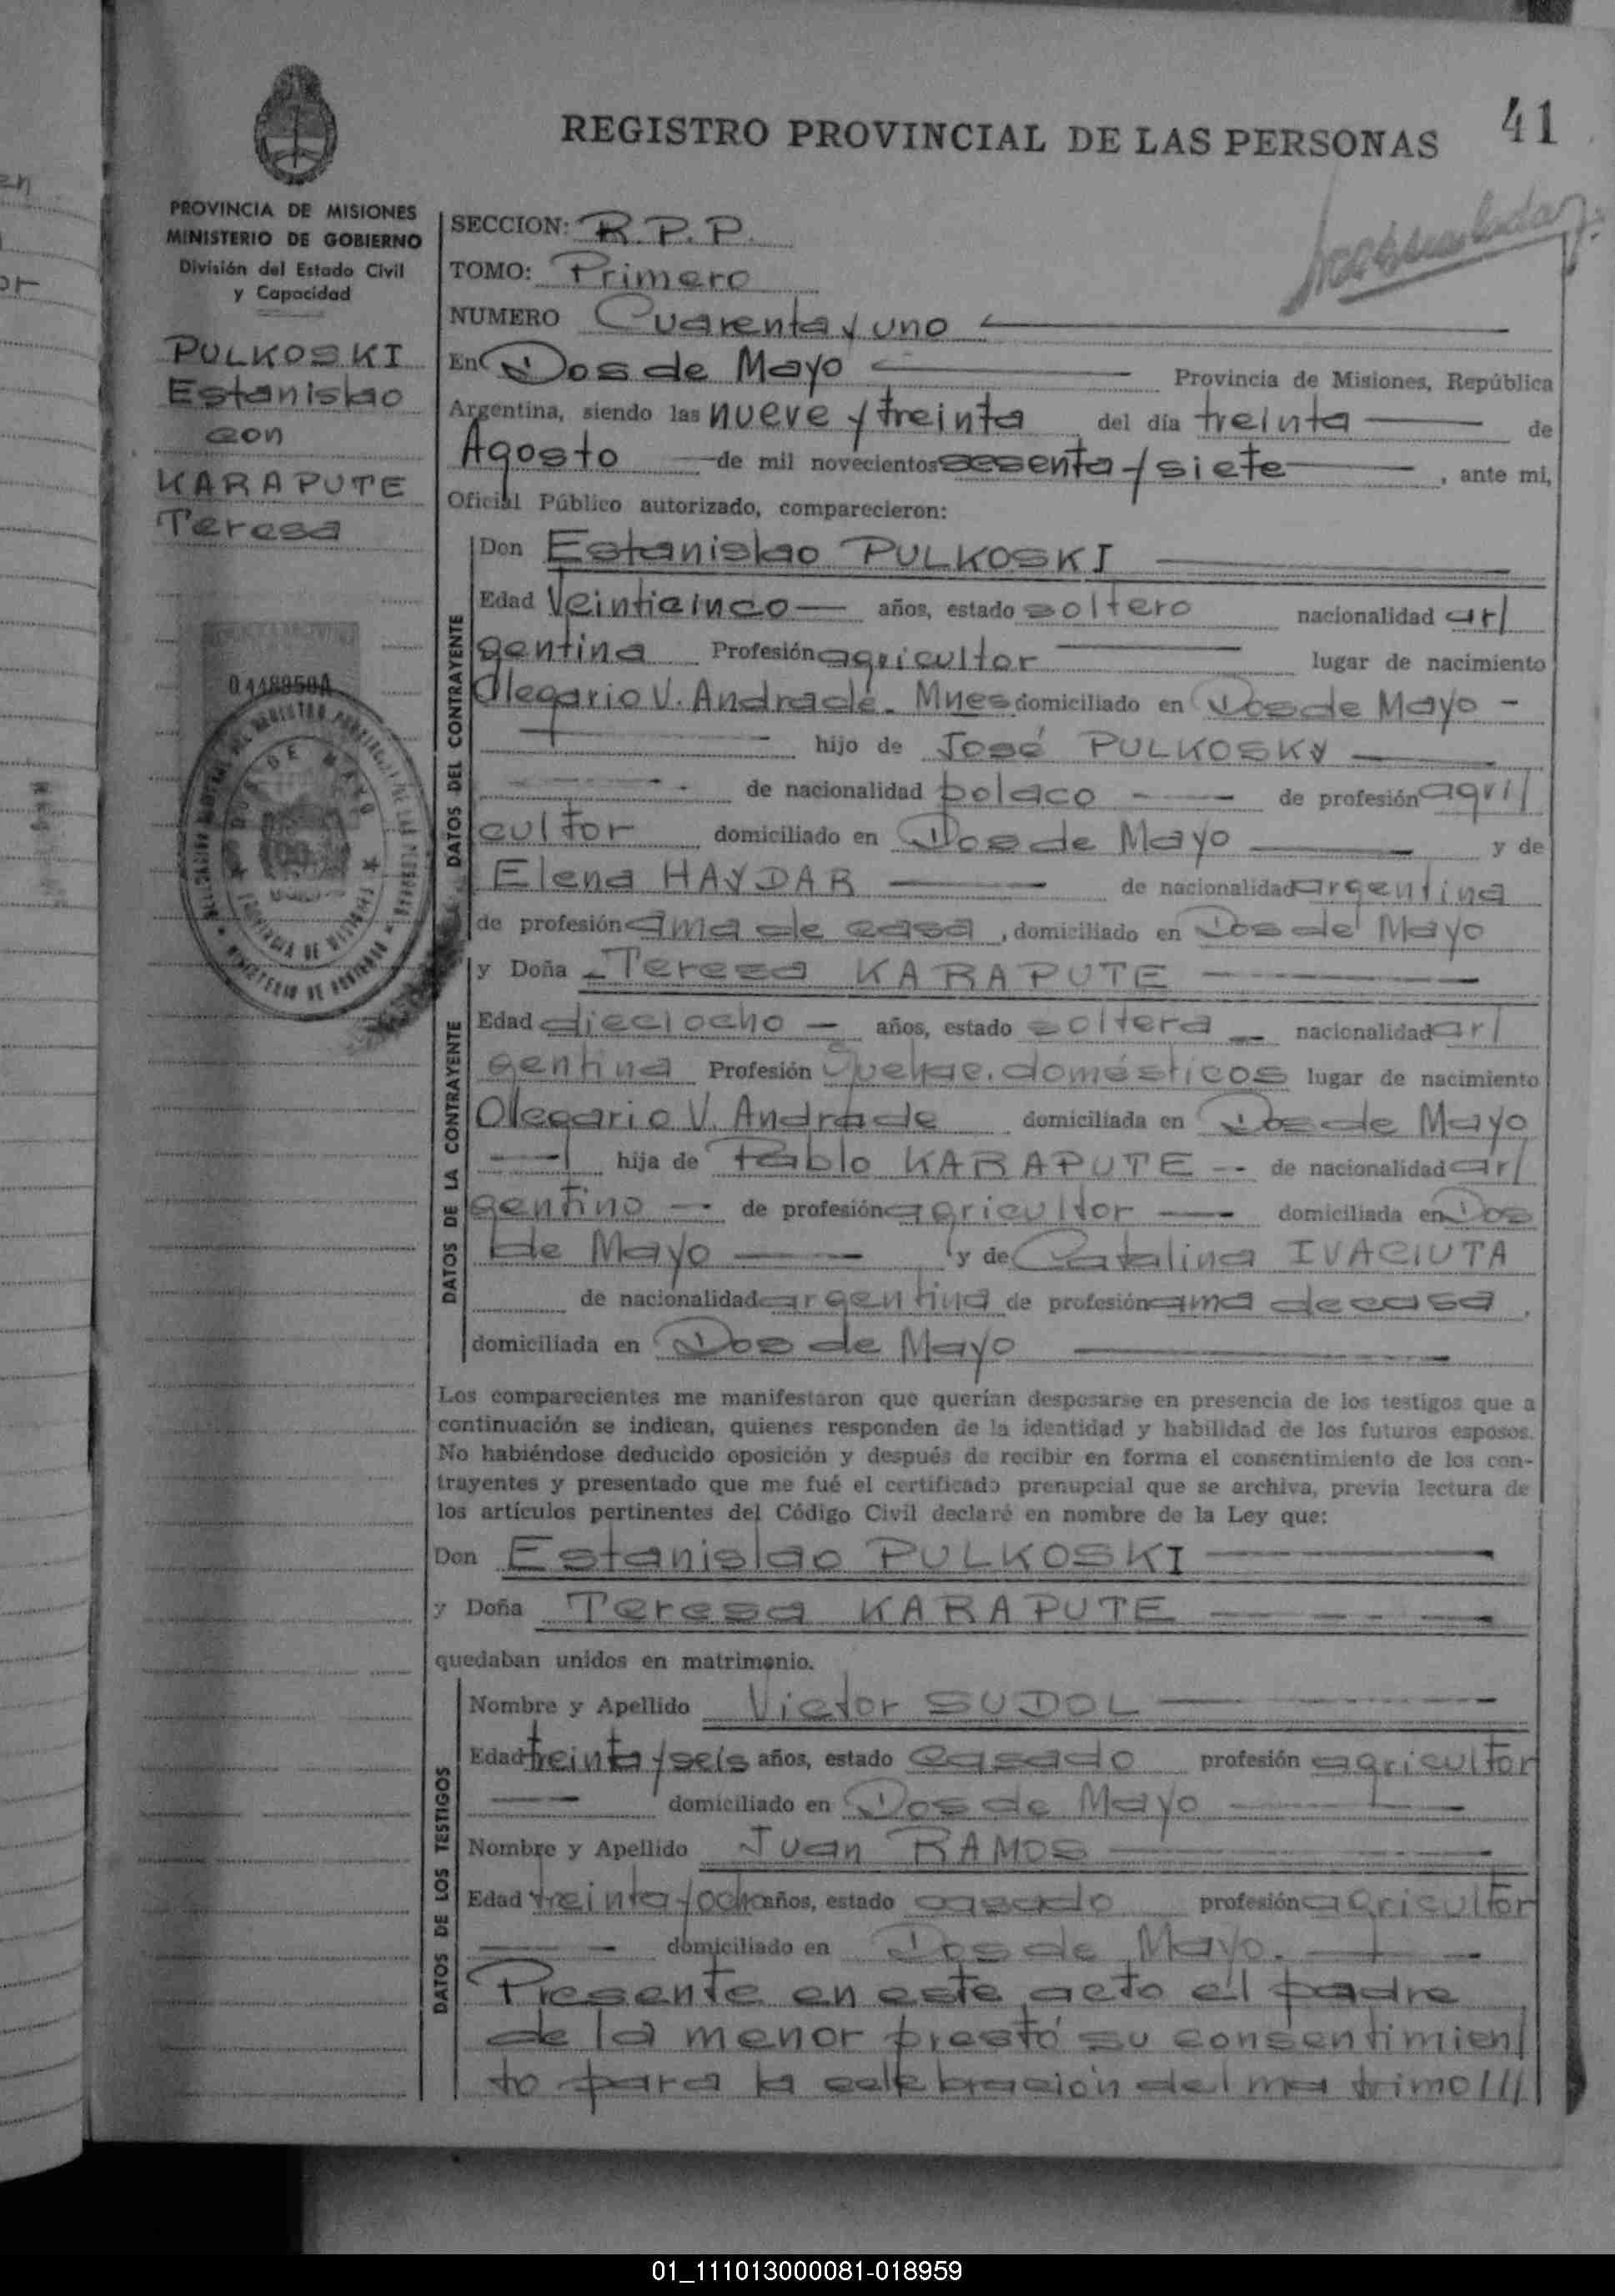 41
REGISTRO PROVINCIAL DE LAS PERSONAS
PROVINCIA DE MISIONES
MINISTERIO DE GOBIERNO
División del Estado Civil
y Capacidad
PULKOSKI
Estanislao
con
KARAPUTE
Teresa
0448950A
SECCION: R.P.P.
TOMO: Primero
NUMERO Cuarenta y uno
En Dos de Mayo Provincia de Misiones, República
Argentina, siendo las nueve y treinta del día treinta de
Agosto de mil novecientos sesenta y siete, ante mi,
Oficial Público autorizado, comparecieron:
DATOS DEL CONTRAYENTE
Don Estanislao PULKOSKI
Edad Veinticinco años, estado soltero nacionalidad ar/
gentina Profesión agricultor lugar de nacimiento
Olegario V. Andrade. Mnes domiciliado en Dos de Mayo -
hijo de José PULKOSKY
de nacionalidad polaco de profesión agri/
cultor domiciliado en Dos de Mayo y de
Elena HAYDAR de nacionalidad argentina
de profesión ama de casa, domiciliado en Dos de Mayo
DATOS DE LA CONTRAYENTE
y Doña Teresa KARAPUTE
Edad dieciocho años, estado soltera nacionalidad ar/
gentina Profesión Quehac. domésticos lugar de nacimiento
Olegario V. Andrade domiciliada en Dos de Mayo
hija de Pablo KARAPUTE de nacionalidad ar/
gentino de profesión agricultor domiciliada en Dos
de Mayo y de Catalina IVACIUTA
de nacionalidad argentina de profesión ama de casa,
domiciliada en Dos de Mayo
Los comparecientes me manifestaron que querían desposarse en presencia de los testigos que a
continuación se indican, quienes responden de la identidad y habilidad de los futuros esposos.
No habiéndose deducido oposición y después de recibir en forma el consentimiento de los con-
trayentes y presentado que me fué el certificado prenupcial que se archiva, previa lectura de
los artículos pertinentes del Código Civil declaré en nombre de la Ley que:
Don Estanislao PULKOSKI
y Doña Teresa KARAPUTE
quedaban unidos en matrimonio.
DATOS DE LOS TESTIGOS
Nombre y Apellido Victor SUDOL
Edad treinta y seis años, estado casado profesión agricultor
domiciliado en Dos de Mayo
Nombre y Apellido Juan RAMOS
Edad treinta y ocho años, estado casado profesión agricultor
domiciliado en Dos de Mayo.
Presente en este acto el padre
de la menor prestó su consentimien/
to para la celebración del matrimo///
01_111013000081-018959